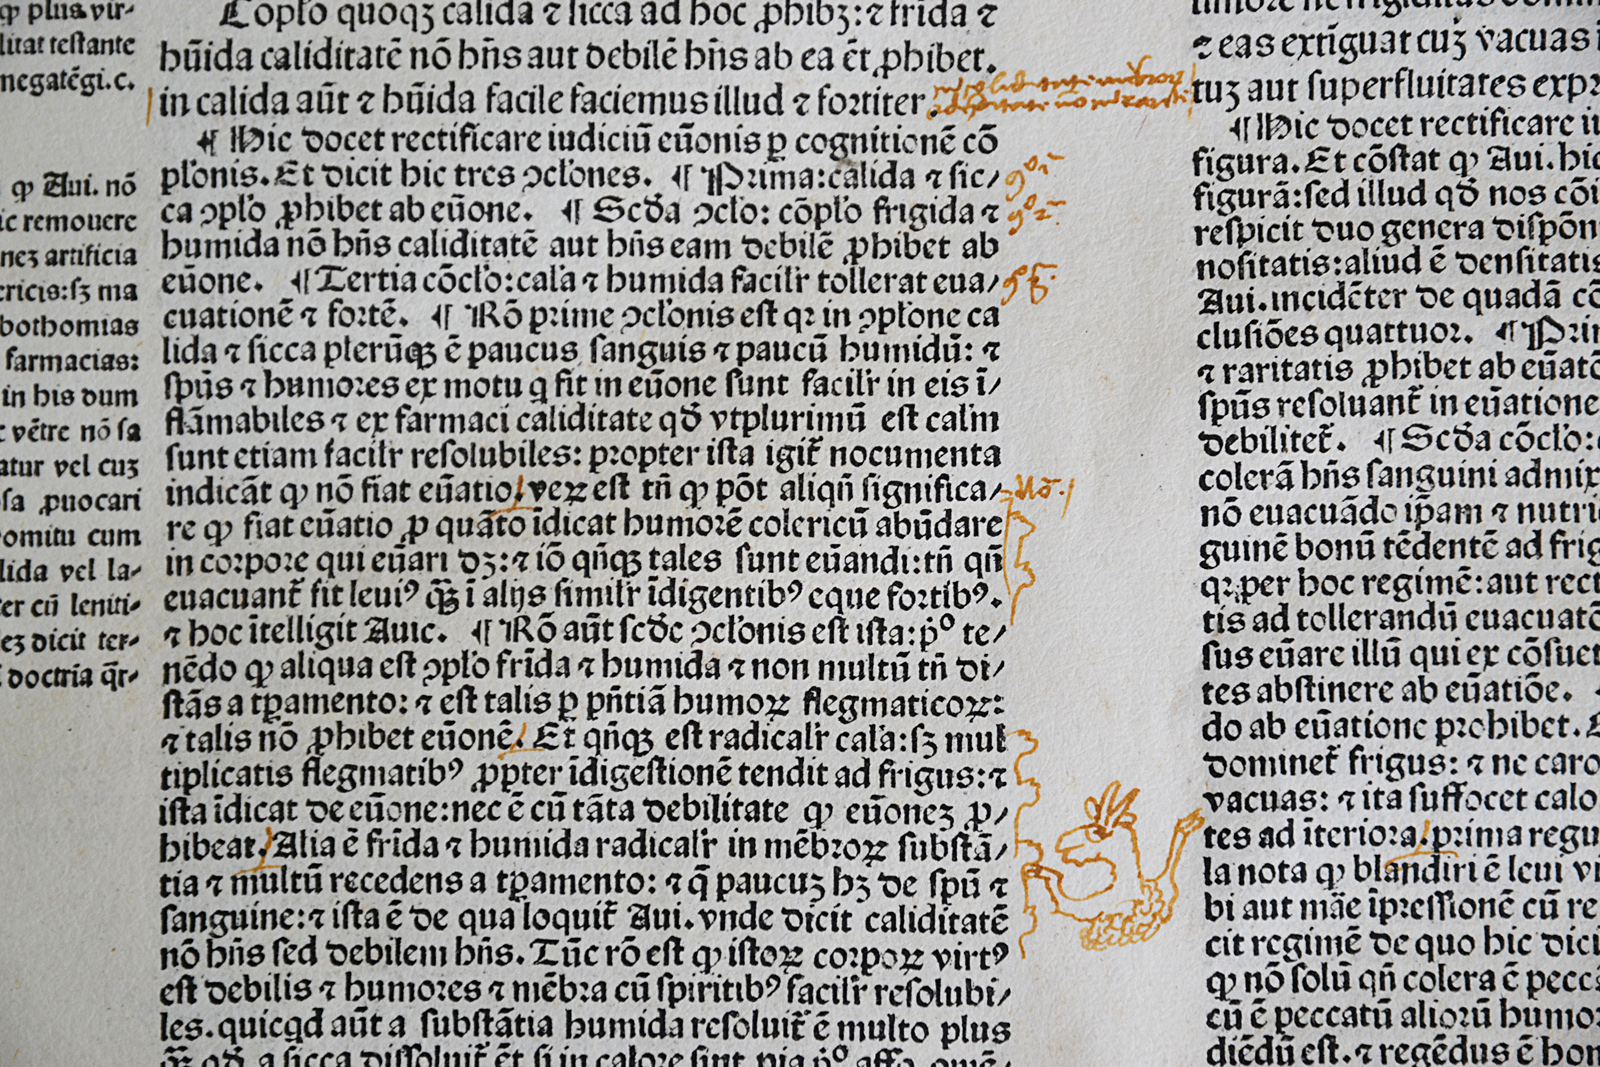 qꝫ plus vir⸗
litat testante
negatēgi.c.
ꝙ Aui. nō
ic remouere
nez artificia
ericis:sꝫ ma
bothomias
farmacias:
in his dum
vētre nō sa
atur vel cuꝫ
sa ꝓuocari
omitu cum
lida vel la⸗
er cū leniti⸗
eꝫ dicit ter⸗
doctria q̄r⸗
Cōplo quoqꝫ calida ⁊ sicca ad hoc ꝓhibꝫ:⁊ frida ⁊
hūida caliditatē nō hn̄s aut debilē hn̄s ab ea ēt ꝓhibet.
in calida aūt ⁊ hūida facile faciemus illud ⁊ fortiter.
¶ Hic docet rectificare iudiciū eūonis ꝑ cognitionē cō
plonis. Et dicit hic tres ꝯclones. ¶ Prima:calida ⁊ sic/
ca ꝯplo ꝓhibet ab eūone. ¶ Scd̄a ꝯclo: cōplo frigida ⁊
humida nō hn̄s caliditatē aut hn̄s eam debilē ꝓhibet ab
eūone. ¶ Tertia cōclo:cala ⁊ humida facilr tollerat eua/
cuationē ⁊ fortē. ¶ Rō prime ꝯclonis est qꝛ in ꝯplone ca
lida ⁊ sicca plerūqꝫ ē paucus sanguis ⁊ paucū humidū: ⁊
spūs ⁊ humores ex motu q fit in eūone sunt facilr in eis ī/
flāmabiles ⁊ ex farmaci caliditate qd̄ vtplurimū est calm
sunt etiam facilr resolubiles: propter ista igit̄ nocumenta
indicāt ꝙ nō fiat eūatio. veꝝ est tn̄ ꝙ pōt aliqn̄ significa/
re ꝙ fiat eūatio ꝑ quāto īdicat humorē colericū abūdare
in corpore qui eūari dꝫ:⁊ iō qn̄qꝫ tales sunt eūandi:tn̄ qn̄
euacuant̄ fit leuiꝰ ꝙ̄ꝫ ī alijs similr īdigentibꝰ eque fortibꝰ.
⁊ hoc ītelligit Auic. ¶ Rō aūt scd̄e ꝯclonis est ista:p̄º te/
nēdo ꝙ aliqua est ꝯplo frida ⁊ humida ⁊ non multū tn̄ di/
stās a tꝑamento: ⁊ est talis ꝑ pn̄tiā humoꝝ flegmaticoꝝ:
⁊ talis nō ꝓhibet eūonē. Et qn̄qꝫ est radicalr cala:sꝫ mul
tiplicatis flegmatibꝰ ꝓpter īdigestionē tendit ad frigus:⁊
ista īdicat de eūone:nec ē cū tāta debilitate ꝙ eūonez ꝓ/
hibeat. Alia ē frida ⁊ humida radicalr in mēbroꝝ substā/
tia ⁊ multū recedens a tꝑamento: ⁊ q̄ paucuꝫ hꝫ de spū ⁊
sanguine:⁊ ista ē de qua loquit̄ Aui. vnde dicit caliditatē
nō hn̄s sed debilem hn̄s. Tūc rō est ꝙ istoꝝ corpoꝝ virtꝰ
est debilis ⁊ humores ⁊ mēbra cū spiritibꝰ facilr resolubi/
les. quicqd aūt a substātia humida resoluit̄ ē multo plus
⁊ eas extīguat cuꝫ vacuas
tuꝫ aut superfluitates expr
¶ Hic docet rectificare
figura. Et cōstat ꝙ Aui. hic
figurā:sed illud qd̄ nos cōi
respicit duo genera dispōn
nositatis:aliud ē densitatis
Aui. incidēter de quadā cō
clusiōes quattuor. ¶ Prim
⁊ raritatis ꝓhibet ab eūatō
spūs resoluant̄ in eūatione
debilitet̄. ¶ Scd̄a cōclo:
colerā hn̄s sanguini admix
nō euacuādo ip̄am ⁊ nutri
guinē bonū tēdentē ad frig
qꝛ per hoc regimē:aut rect
tis ad tollerandū euacuatō
sus eūare illū qui ex cōsuet
tes abstinere ab eūatiōe.
do ab eūatione prohibet.
dominet̄ frigus: ⁊ ne caro
vacuas: ⁊ ita suffocet calo
tes ad īteriora. prima regu
la nota ꝙ blandiri ē leui vi
bi aut māe īpressionē cū re
cit regimē de quo hic dici
ꝙ nō solū qn̄ colera ē pecc
cū ē peccatū alioꝛū humo
diēdū est. ⁊ regēdus ē hon